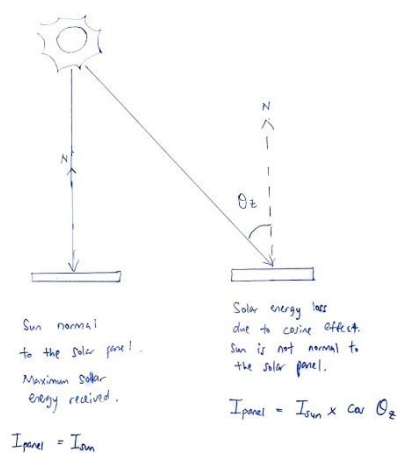 N
N
θz
Sun normal
to the solar panel.
Maximum solar
energy received.
I panel = I sun
Solar energy loss
due to cosine effect.
Sun is not normal to
the solar panel.
I panel = I sun x cos θz